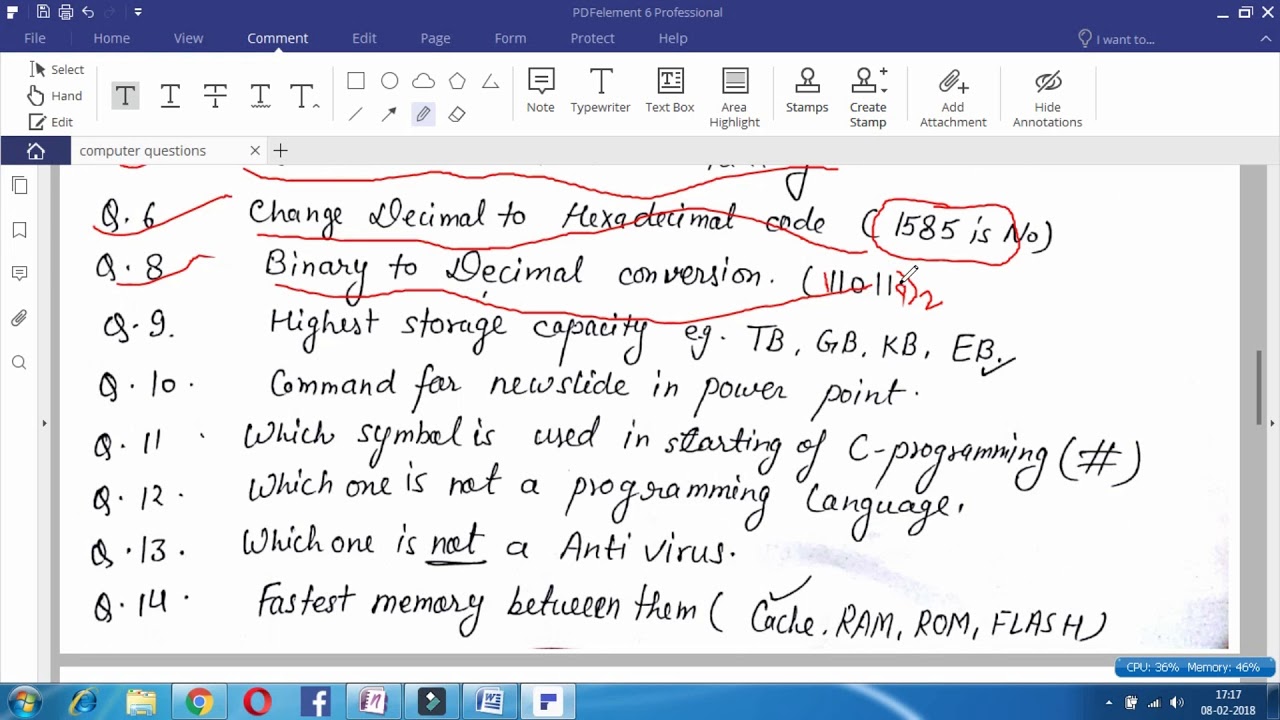 PDFelement 6 Professional
File Home View Comment Edit Page Form Protect Help I want to...
Select
Hand
Edit
Note Typewriter Text Box Area Highlight Stamps Create Stamp Add Attachment Hide Annotations
computer questions
Q.6 Change Decimal to Hexadecimal code (1585 is No)
Q.8 Binary to Decimal conversion.
Q.9. Highest storage capacity eg. TB, GB, KB, EB.
Q.10. Command for newslide in power point.
Q.11. Which symbol is used in starting of C-programming (#)
Q.12. Which one is not a programming Language.
Q.13. Which one is not a Anti virus.
Q.14. Fastest memory between them ( Cache. RAM, ROM, FLASH)
CPU: 36% Memory: 46%
17:17
08-02-2018